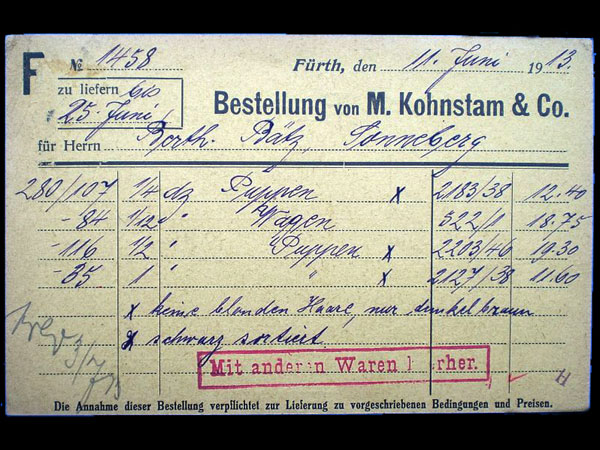 F № 1458 Fürth, den 11. Juni 1913.
zu liefern bis
25. Juni
Bestellung von M. Kohnstam & Co.
für Herrn Berth. Bätz, Sonneberg
280/107 1/4 dz Puppen x 2183/38 12.40
-84 1/12 " Wagen 322/1 18.75
-116 1/2 " Puppen x 2203/46 19.30
-35 1 " " x 2127/38 11.60
x keine blonden Haare, nur dunkelbraun
x schwarz sortiert
3/7 13
Mit anderen Waren hierher.
Die Annahme dieser Bestellung verpflichtet zur Lieferung zu vorgeschriebenen Bedingungen und Preisen.